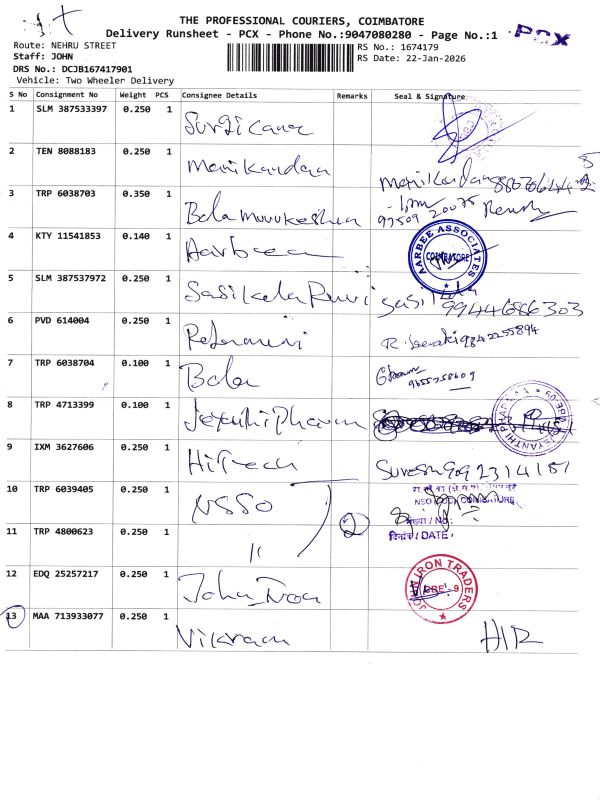 THE PROFESSIONAL COURIERS, COIMBATORE
Delivery Runsheet - PCX - Phone No.:9047080280 - Page No.:1
PCX
Route: NEHRU STREET
Staff: JOHN
DRS No.: DCJB167417901
Vehicle: Two Wheeler Delivery
RS No.: 1674179
RS Date: 22-Jan-2026
S No Consignment No Weight PCS Consignee Details Remarks Seal & Signature
1 SLM 387533397 0.250 1 Surgicare
2 TEN 8088183 0.250 1 Manikandan Manikandan
3 TRP 6038703 0.350 1 Bala Murukeshan
4 KTY 11541853 0.140 1 Aarbee AARBEE ASSOCIATES COIMBATORE
5 SLM 387537972 0.250 1 Sasikala 9944686303
6 PVD 614004 0.250 1 9842255894
7 TRP 6038704 0.100 1 Bala 9655758609
8 TRP 4713399 0.100 1 Jeyanthi Pharma
9 IXM 3627606 0.250 1 Hitech Suresh
10 TRP 6039405 0.250 1 NSSO COIMBATORE
2
संख्या / No.
11 TRP 4800623 0.250 1 11 दिनांक / DATE.
12 EDQ 25257217 0.250 1 John Iron JOHN IRON TRADERS CBE - 9
13 MAA 713933077 0.250 1 Vikram H/R